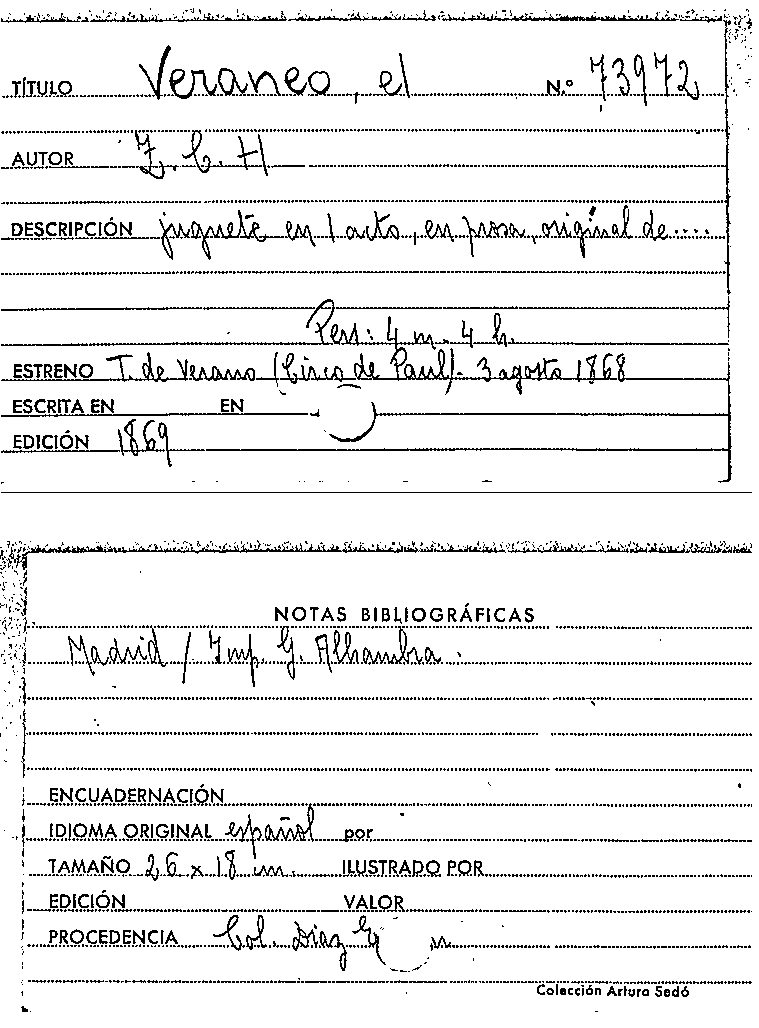 TÍTULO Veraneo, el N.º 73972
AUTOR Z. C. H
DESCRIPCIÓN juguete en 1 acto, en prosa, original de....
Pers: 4 m. 4 h.
ESTRENO T. de Verano (Circo de Paul). 3 agosto 1868
ESCRITA EN EN
EDICIÓN 1869
NOTAS BIBLIOGRÁFICAS
Madrid / Imp. G. Alhambra.
ENCUADERNACIÓN
IDIOMA ORIGINAL español por
TAMAÑO 26 x 18 cm. ILUSTRADO POR
EDICIÓN VALOR
PROCEDENCIA Col. Díaz
Colección Arturo Sedó